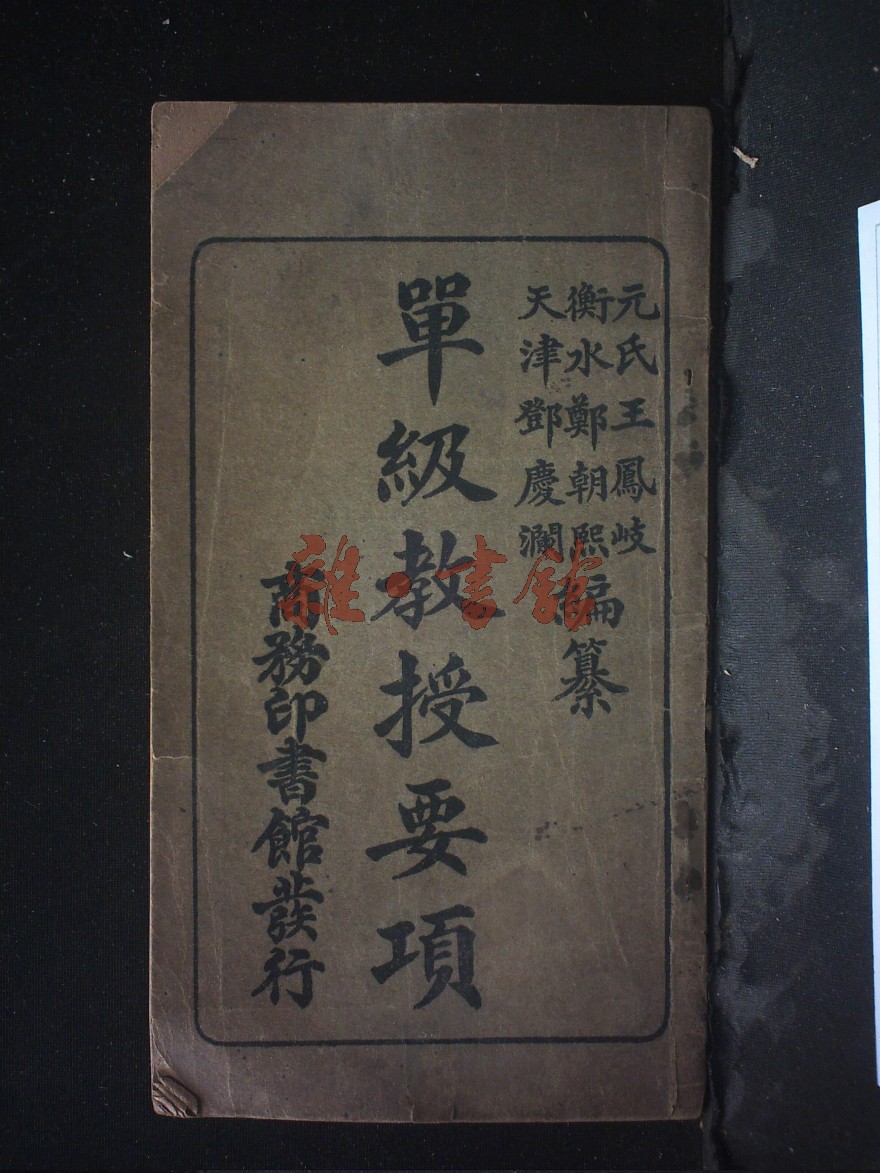 元氏王鳳岐
衡水鄭朝熙
天津鄧慶瀾
編纂
單級教授要項
商務印書館發行
雜·書館